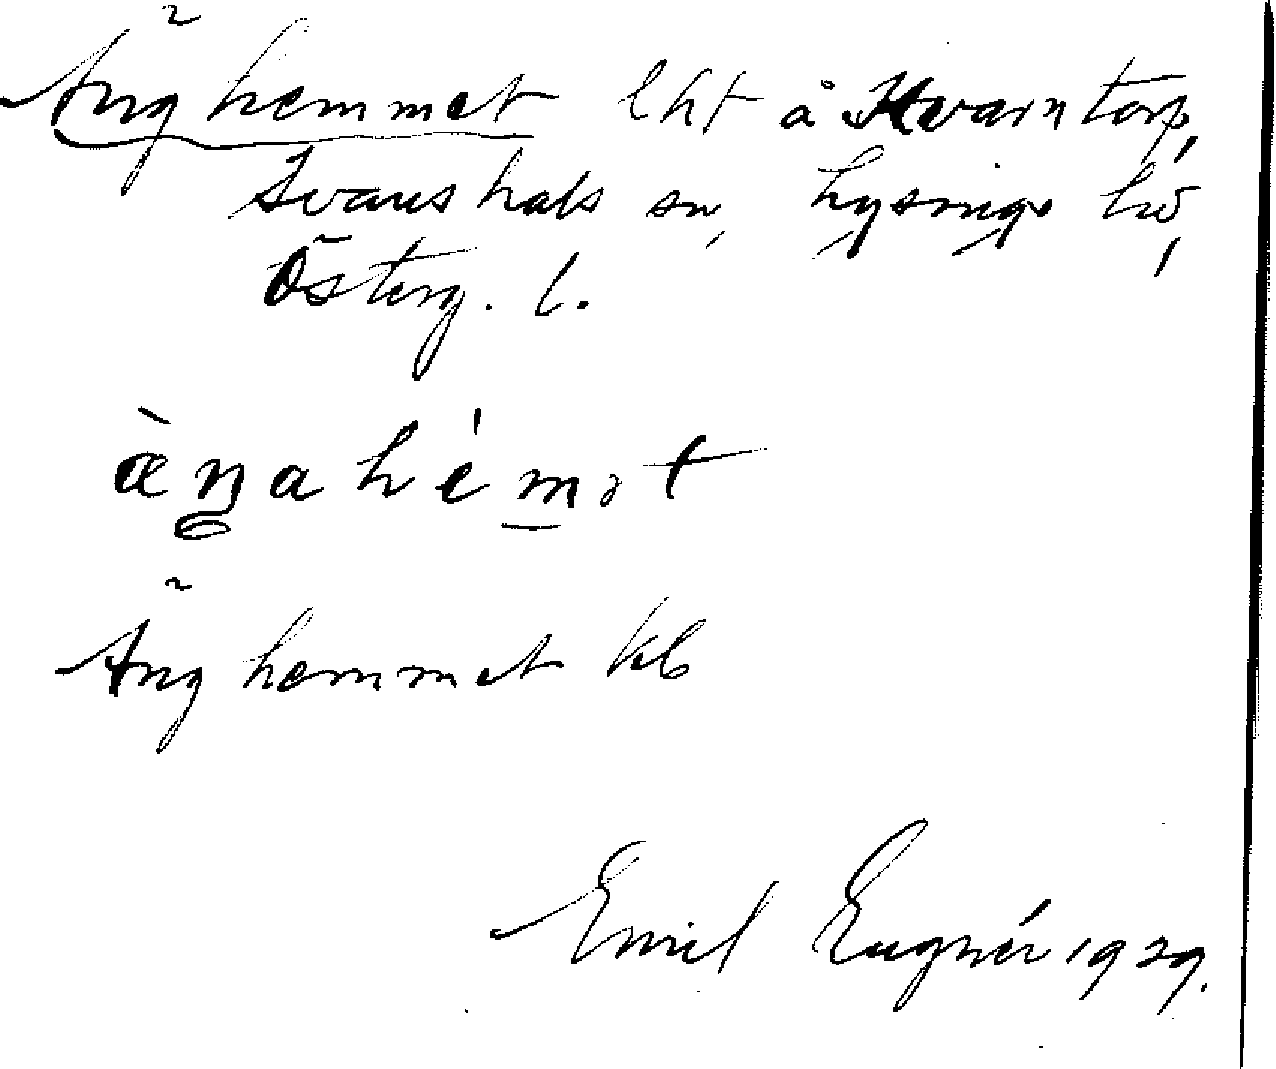 Änghemmet lht å Kvarntorp,
Svanshals sn, Lysings hd,
Österg. l.
æ̀ŋahémət
Änghemmet kb
Emil Eugnér 1929.